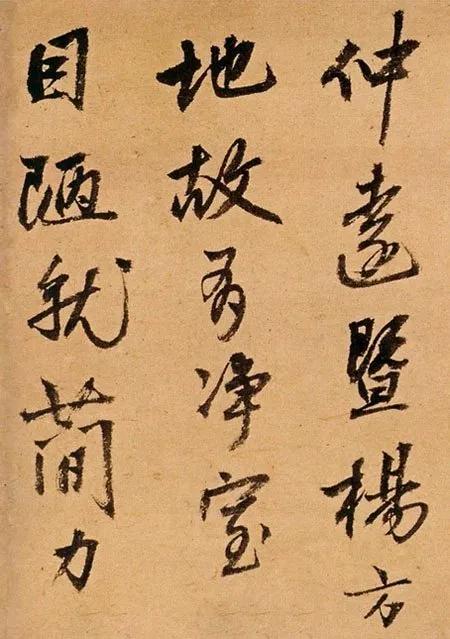 仲遠暨楊方
地故有净室
因陋就簡力